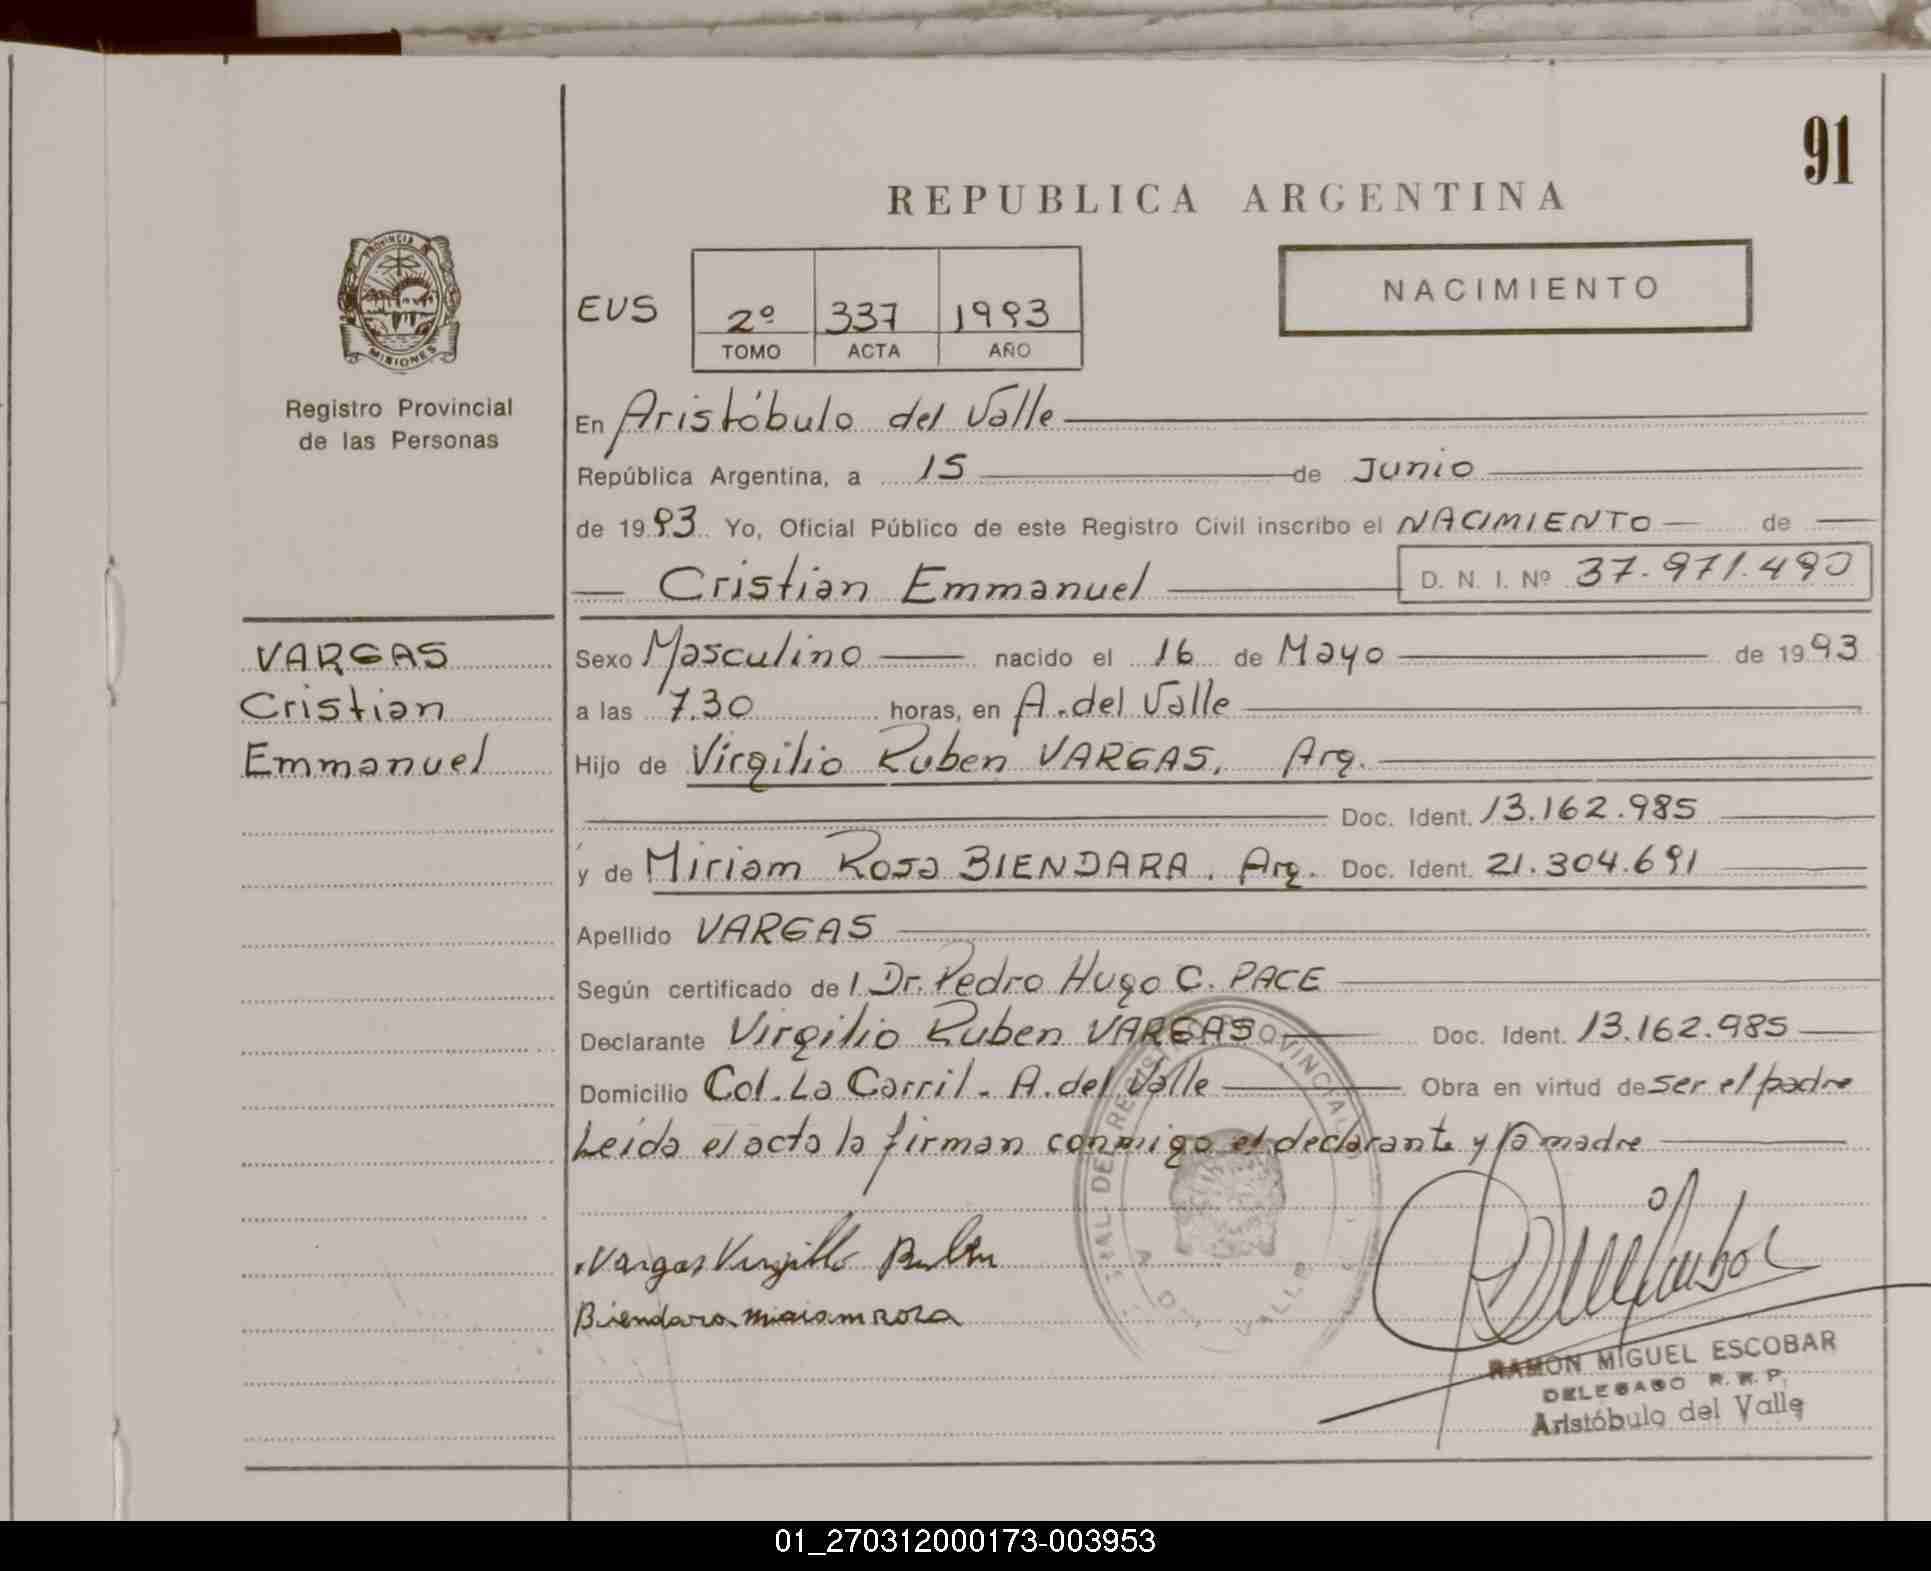 91
REPUBLICA ARGENTINA
PROVINCIA
MISIONES
Registro Provincial
de las Personas
EUS
2º 337 1993
TOMO ACTA AÑO
NACIMIENTO
En Aristóbulo del Valle
República Argentina, a 15 de Junio
de 1993 Yo, Oficial Público de este Registro Civil inscribo el NACIMIENTO de
Cristian Emmanuel D. N. I. Nº 37.971.490
VARGAS
Cristian
Emmanuel
Sexo Masculino nacido el 16 de Mayo de 1993
a las 7.30 horas, en A. del Valle
Hijo de Virgilio Ruben VARGAS, Arg.
Doc. Ident. 13.162.985
y de Miriam Rosa BIENDARA. Arg. Doc. Ident. 21.304.691
Apellido VARGAS
Según certificado de l Dr. Pedro Hugo C. PACE
Declarante Virgilio Ruben VARGAS Doc. Ident. 13.162.985
Domicilio Col. La Carril. A. del Valle Obra en virtud de ser el padre
Leida el acta la firman conmigo el declarante y la madre
Vargas Virgilio Ruben
Biendara Miriam Rosa
RAMON MIGUEL ESCOBAR
DELEGADO R. R. P.
Aristóbulo del Valle
01_270312000173-003953